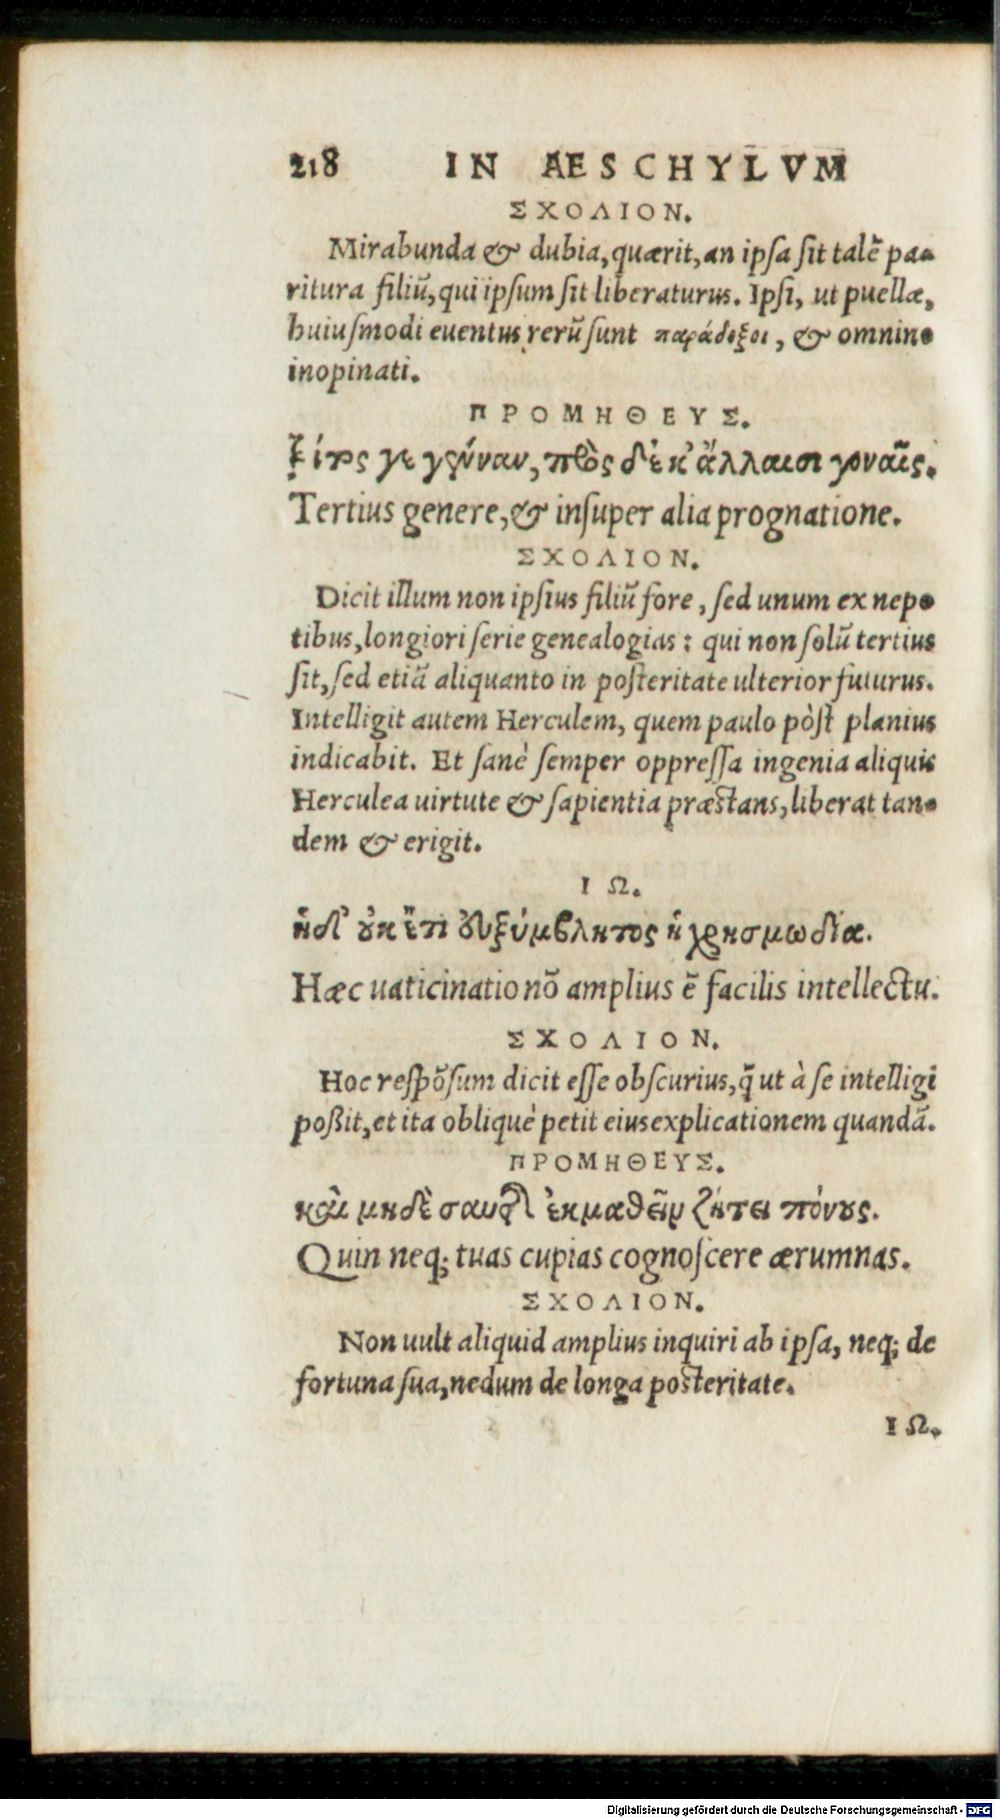 218 IN AESCHYLVM
ΣΧΟΛΙΟΝ.
Mirabunda & dubia, quærit, an ipsa sit talẽ pa-
ritura filiũ, qui ipsum sit liberaturus. Ipsi, ut puellæ,
huiusmodi euentus rerũ sunt παράδοξοι, & omnino
inopinati.
ΠΡΟΜΗΘΕΥΣ.
τρίτος γε γένναν, πρὸς δέκ' ἄλλαισι γοναῖς.
Tertius genere, & insuper alia prognatione.
ΣΧΟΛΙΟΝ.
Dicit illum non ipsius filiũ fore, sed unum ex nepo-
tibus, longiori serie genealogias: qui non solũ tertius
sit, sed etiã aliquanto in posteritate ulterior futurus.
Intelligit autem Herculem, quem paulo pòst planius
indicabit. Et sanè semper oppressa ingenia aliquis
Herculea uirtute & sapientia præstans, liberat tan-
dem & erigit.
ΙΩ.
ἥδ' οὐκ ἔτι εὐξύμβλητος ἡ χρησμωδία.
Hæc uaticinatio nõ amplius ẽ facilis intellectu.
ΣΧΟΛΙΟΝ.
Hoc respõsum dicit esse obscurius, q̃ ut à se intelligi
poßit, et ita obliquè petit eius explicationem quandã.
ΠΡΟΜΗΘΕΥΣ.
καὶ μηδὲ σαυτῆς ἐκμαθεῖν ζήτει πόνους.
Quin neq; tuas cupias cognoscere ærumnas.
ΣΧΟΛΙΟΝ.
Non uult aliquid amplius inquiri ab ipsa, neq; de
fortuna sua, nedum de longa posteritate.
ΙΩ.
Digitalisierung gefördert durch die Deutsche Forschungsgemeinschaft - DFG